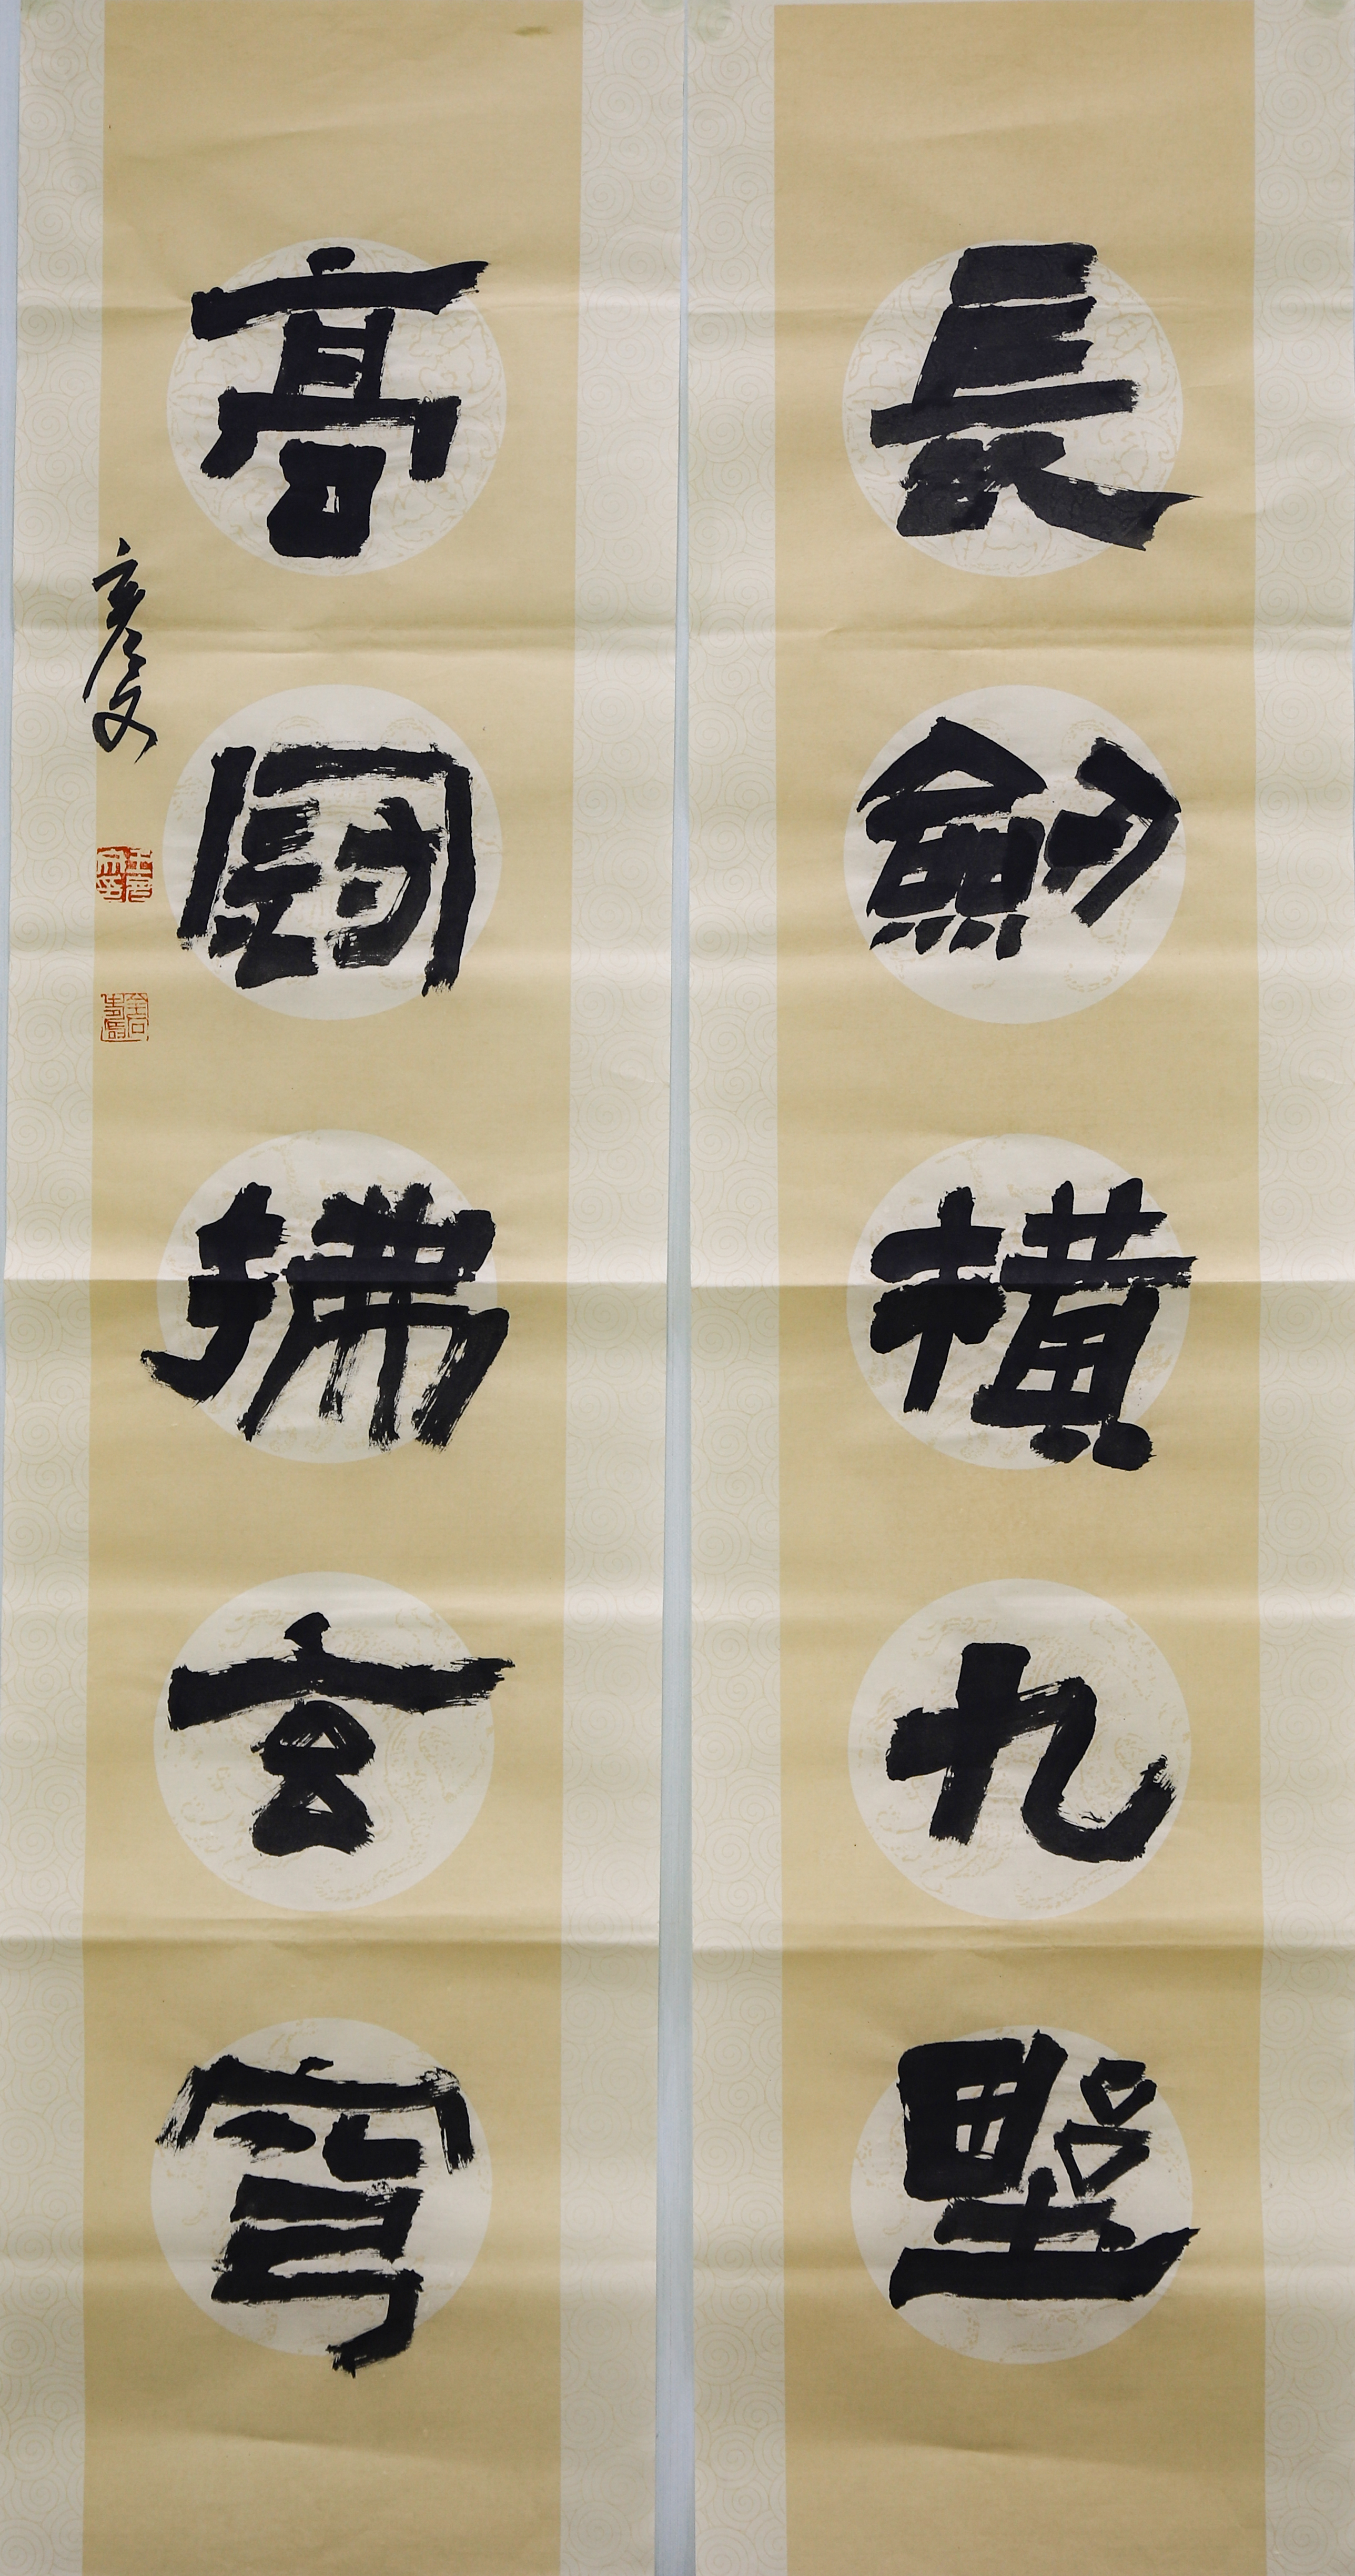 長劍橫九野
高冠拂玄穹